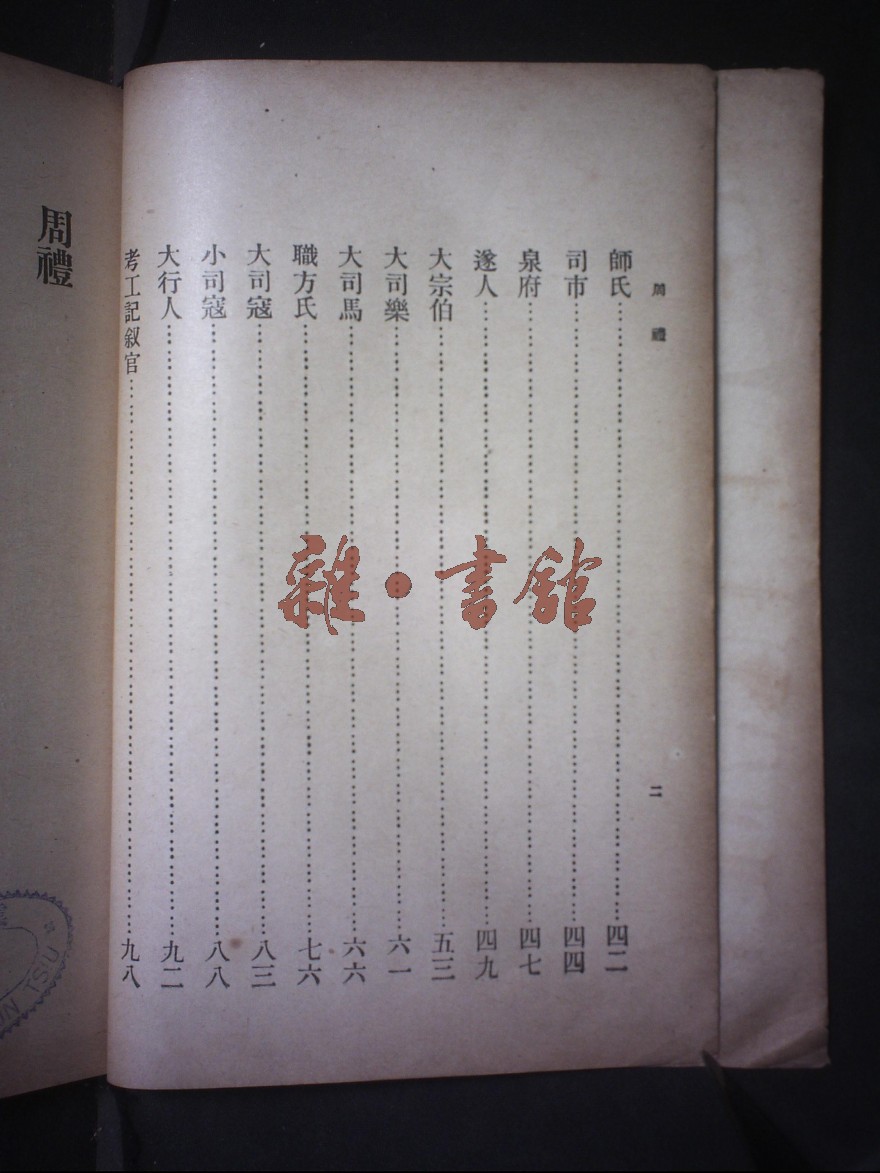 周禮
二
師氏……四二
司市……四四
泉府……四七
遂人……四九
大宗伯……五三
大司樂……六一
大司馬……六六
職方氏……七六
大司寇……八三
小司寇……八八
大行人……九二
考工記叙官……九八
周禮
雜·書館
UN TSU